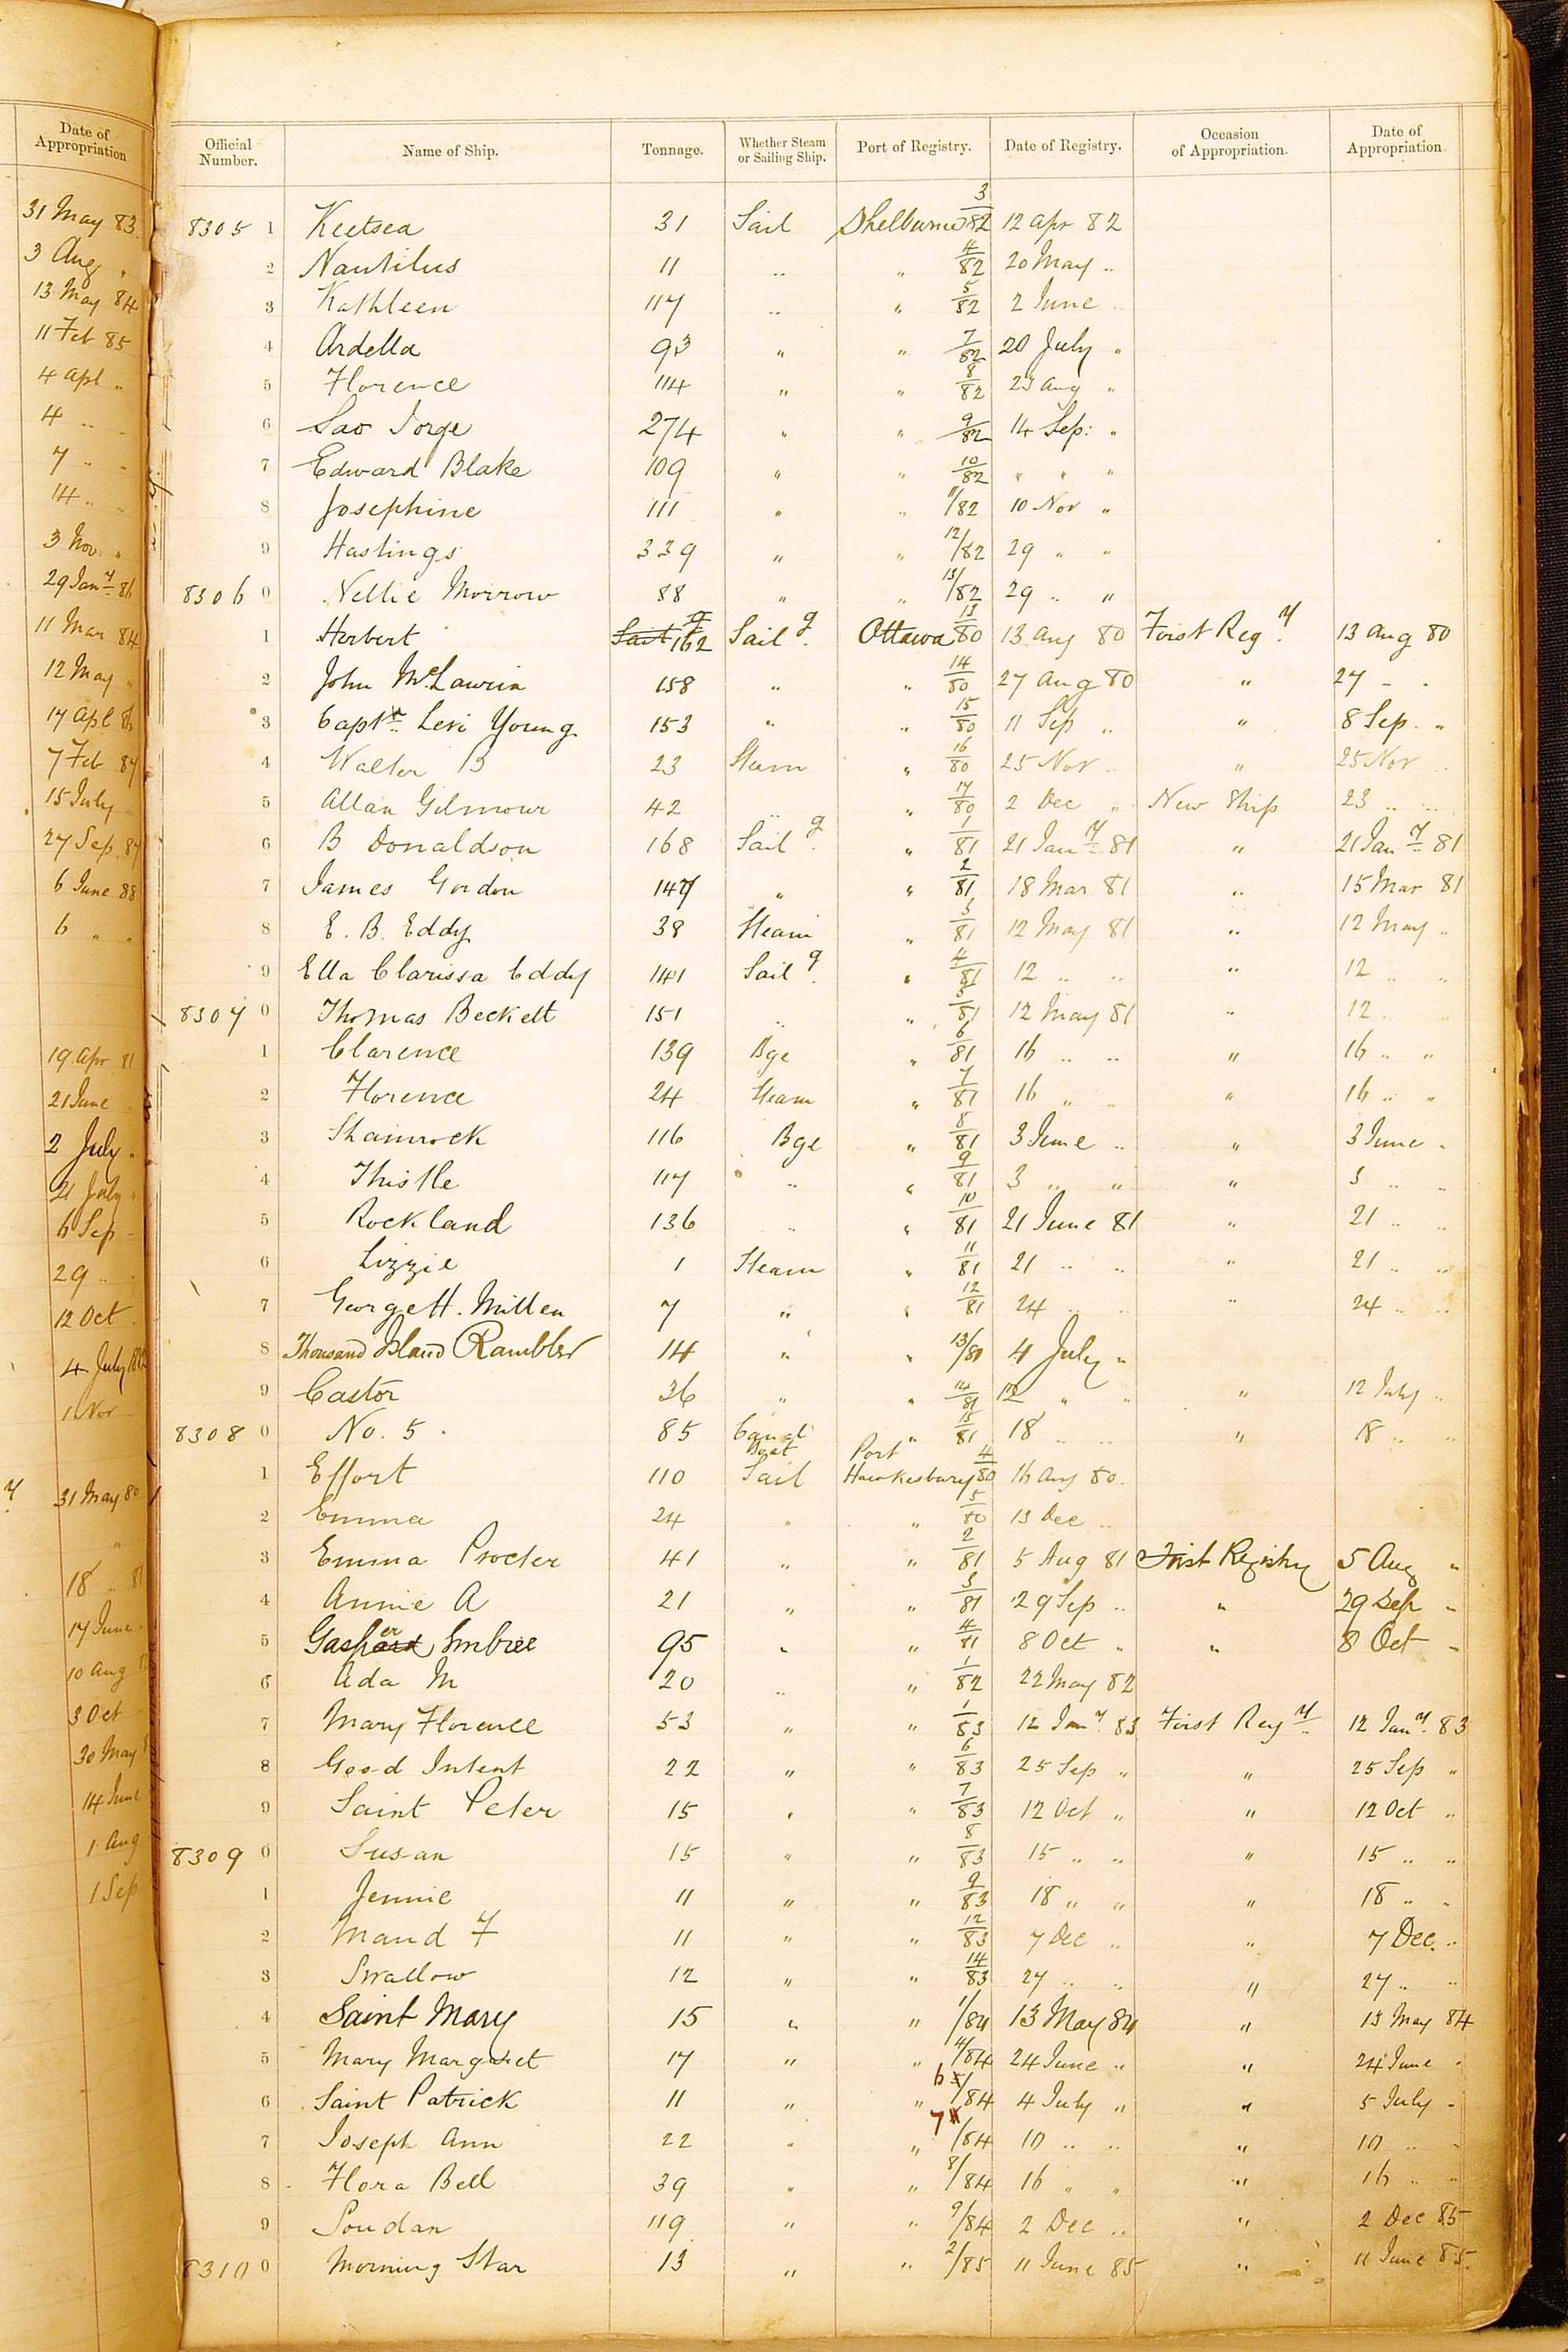 Date of Appropriation
31 May 83
3 Aug "
13 May 84
11 Feb 85
4 Apl "
4 " "
7 " "
14 " "
3 Nov "
29 Jany 86
11 Mar 84
12 May "
17 Apl 86
7 Feb 87
15 July "
27 Sep 87
6 June 88
6 " "
19 Apr 81
21 June
2 July "
21 July "
6 Sep "
29 " "
12 Oct
4 July 1882
1 Nov
31 May 80
"
18 " 81
17 June
10 Aug
3 Oct
30 May
14 June
1 Aug
1 Sep
Official Number. Name of Ship. Tonnage. Whether Steam or Sailing Ship. Port of Registry. Date of Registry. Occasion of Appropriation. Date of Appropriation.
8305 1 Keetsea 31 Sail Shelburne 3/82 12 Apr 82
2 Nautilus 11 " " 4/82 20 May "
3 Kathleen 117 " " 5/82 2 June "
4 Ardella 93 " " 7/82 20 July "
5 Florence 114 " " 8/82 23 Aug "
6 Sao Jorge 274 " " 9/82 14 Sep: "
7 Edward Blake 109 " " 10/82 " " "
8 Josephine 111 " " 11/82 10 Nov "
9 Hastings 339 " " 12/82 29 " "
8306 0 Nellie Morrow 88 " " 13/82 29 " "
1 Herbert Sail 162 Sailg Ottawa 13/80 13 Aug 80 First Regy 13 Aug 80
2 John McLaurin 158 " " 14/80 27 Aug 80 " 27 " "
3 Captn Levi Young 153 " " 15/80 11 Sep " " 8 Sep "
4 Walter B 23 Steam " 16/80 25 Nov " " 25 Nov "
5 Allan Gilmour 42 " " 17/80 2 Dec " New Ship 23 " "
6 B Donaldson 168 Sailg " 1/81 21 Jany 81 " 21 Jany 81
7 James Gordon 147 " " 2/81 18 Mar 81 " 15 Mar 81
8 E. B. Eddy 38 Steam " 3/81 12 May 81 " 12 May "
9 Ella Clarissa Eddy 141 Sailg " 4/81 12 " " " 12 " "
8307 0 Thomas Beckett 151 " " 5/81 12 May 81 " 12 " "
1 Clarence 139 Bge " 6/81 16 " " " 16 " "
2 Florence 24 Steam " 7/81 16 " " " 16 " "
3 Shamrock 116 Bge " 8/81 3 June " " 3 June "
4 Thistle 117 " " 9/81 3 " " " 3 " "
5 Rockland 136 " " 10/81 21 June 81 " 21 " "
6 Lizzie 1 Steam " 11/81 21 " " " 21 " "
7 George H. Millen 7 " " 12/81 24 " " " 24 " "
8 Thousand Island Rambler 14 " " 13/81 4 July "
9 Castor 36 " " 14/81 12 " " " 12 July "
8308 0 No. 5 85 Canal Boat " 15/81 18 " " " 18 " "
1 Effort 110 Sail Port Hawkesbury 4/80 16 Aug 80
2 Emma 24 " " 5/80 13 Dec "
3 Emma Procter 41 " " 2/81 5 Aug 81 First Registry 5 Aug "
4 Annie A 21 " " 3/81 29 Sep " " 29 Sep "
5 Gaspard er Embree 95 " " 4/81 8 Oct " " 8 Oct "
6 Ada M 20 " " 1/82 22 May 82
7 Mary Florence 53 " " 1/83 12 Jany 83 First Regy 12 Jany 83
8 Good Intent 22 " " 6/83 25 Sep " " 25 Sep "
9 Saint Peter 15 " " 7/83 12 Oct " " 12 Oct "
8309 0 Susan 15 " " 8/83 15 " " " 15 " "
1 Jennie 11 " " 9/83 18 " " " 18 " "
2 Maud F 11 " " 12/83 7 Dec " " 7 Dec. "
3 Swallow 12 " " 14/83 27 " " " 27 " "
4 Saint Mary 15 " " 1/84 13 May 84 " 13 May 84
5 Mary Margaret 17 " " 4/84 24 June " " 24 June "
6 Saint Patrick 11 " " 6/84 4 July " " 5 July "
7 Joseph Ann 22 " " 7/84 10 " " " 10 " "
8 Flora Bell 39 " " 8/84 16 " " " 16 " "
9 Soudan 119 " " 9/84 2 Dec " " 2 Dec 85
8310 0 Morning Star 13 " " 2/85 11 June 85 " 11 June 85